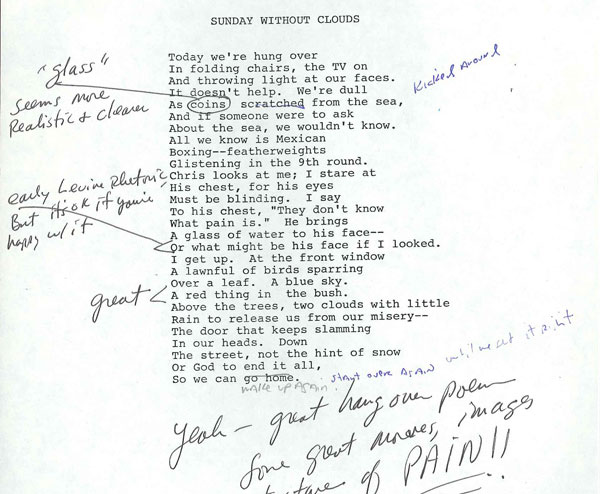 SUNDAY WITHOUT CLOUDS
Today we're hung over
In folding chairs, the TV on
And throwing light at our faces.
It doesn't help.  We're dull
As coins scratched from the sea,
And if someone were to ask
About the sea, we wouldn't know.
All we know is Mexican
Boxing--featherweights
Glistening in the 9th round.
Chris looks at me; I stare at
His chest, for his eyes
Must be blinding.  I say
To his chest, "They don't know
What pain is."  He brings
A glass of water to his face--
Or what might be his face if I looked.
I get up.  At the front window
A lawnful of birds sparring
Over a leaf.  A blue sky.
A red thing in the bush.
Above the trees, two clouds with little
Rain to release us from our misery--
The door that keeps slamming
In our heads.  Down
The street, not the hint of snow
Or God to end it all,
So we can go home.
"glass"
seems more
Realistic & clearer
Kicked Around
early Levine Rhetoric,
But it's ok if you're
happy w/ it
great
wake up again
start over again
while we at it
Yeah - great hang over poem
Some great moves, images
of PAIN!!